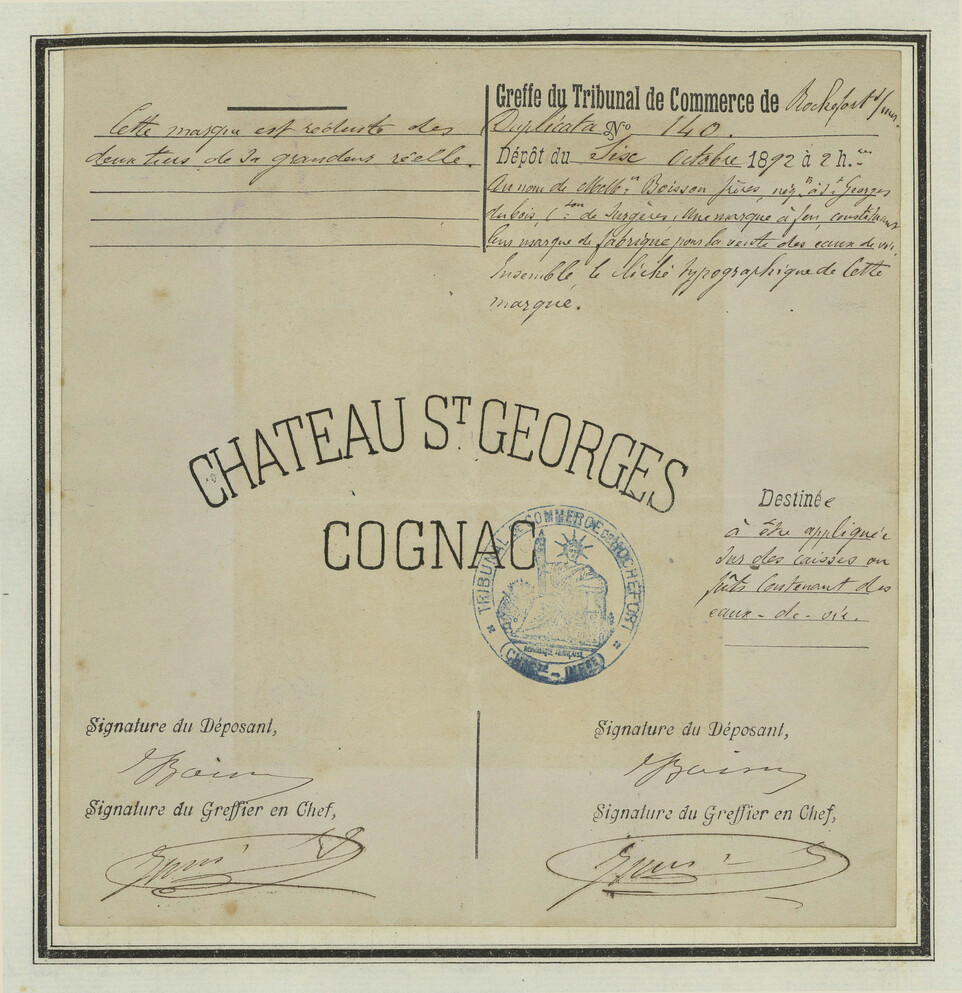 Cette marque est réduite des
deux tiers de sa grandeur réelle.
Greffe du Tribunal de Commerce de Rochefort s/mer.
Duplicata No 140.
Dépôt du Six Octobre 1892 à 2 h.
Au nom de Boisson frères, nég. à St Georges
du bois, Con de Surgères, Une marque à feu constituant
leur marque de fabrique pour la vente des eaux de vie.
Ensemble le Cliché typographique de Cette
marque.
CHATEAU ST GEORGES
COGNAC
TRIBUNAL DE COMMERCE DE ROCHEFORT
REPUBLIQUE FRANÇAISE
(CHARTE-INFRE)
Destinée
à être appliquée
sur des caisses ou
fûts Contenant des
eaux-de-vie.
Signature du Déposant,
Signature du Greffier en Chef,
Signature du Déposant,
Signature du Greffier en Chef,